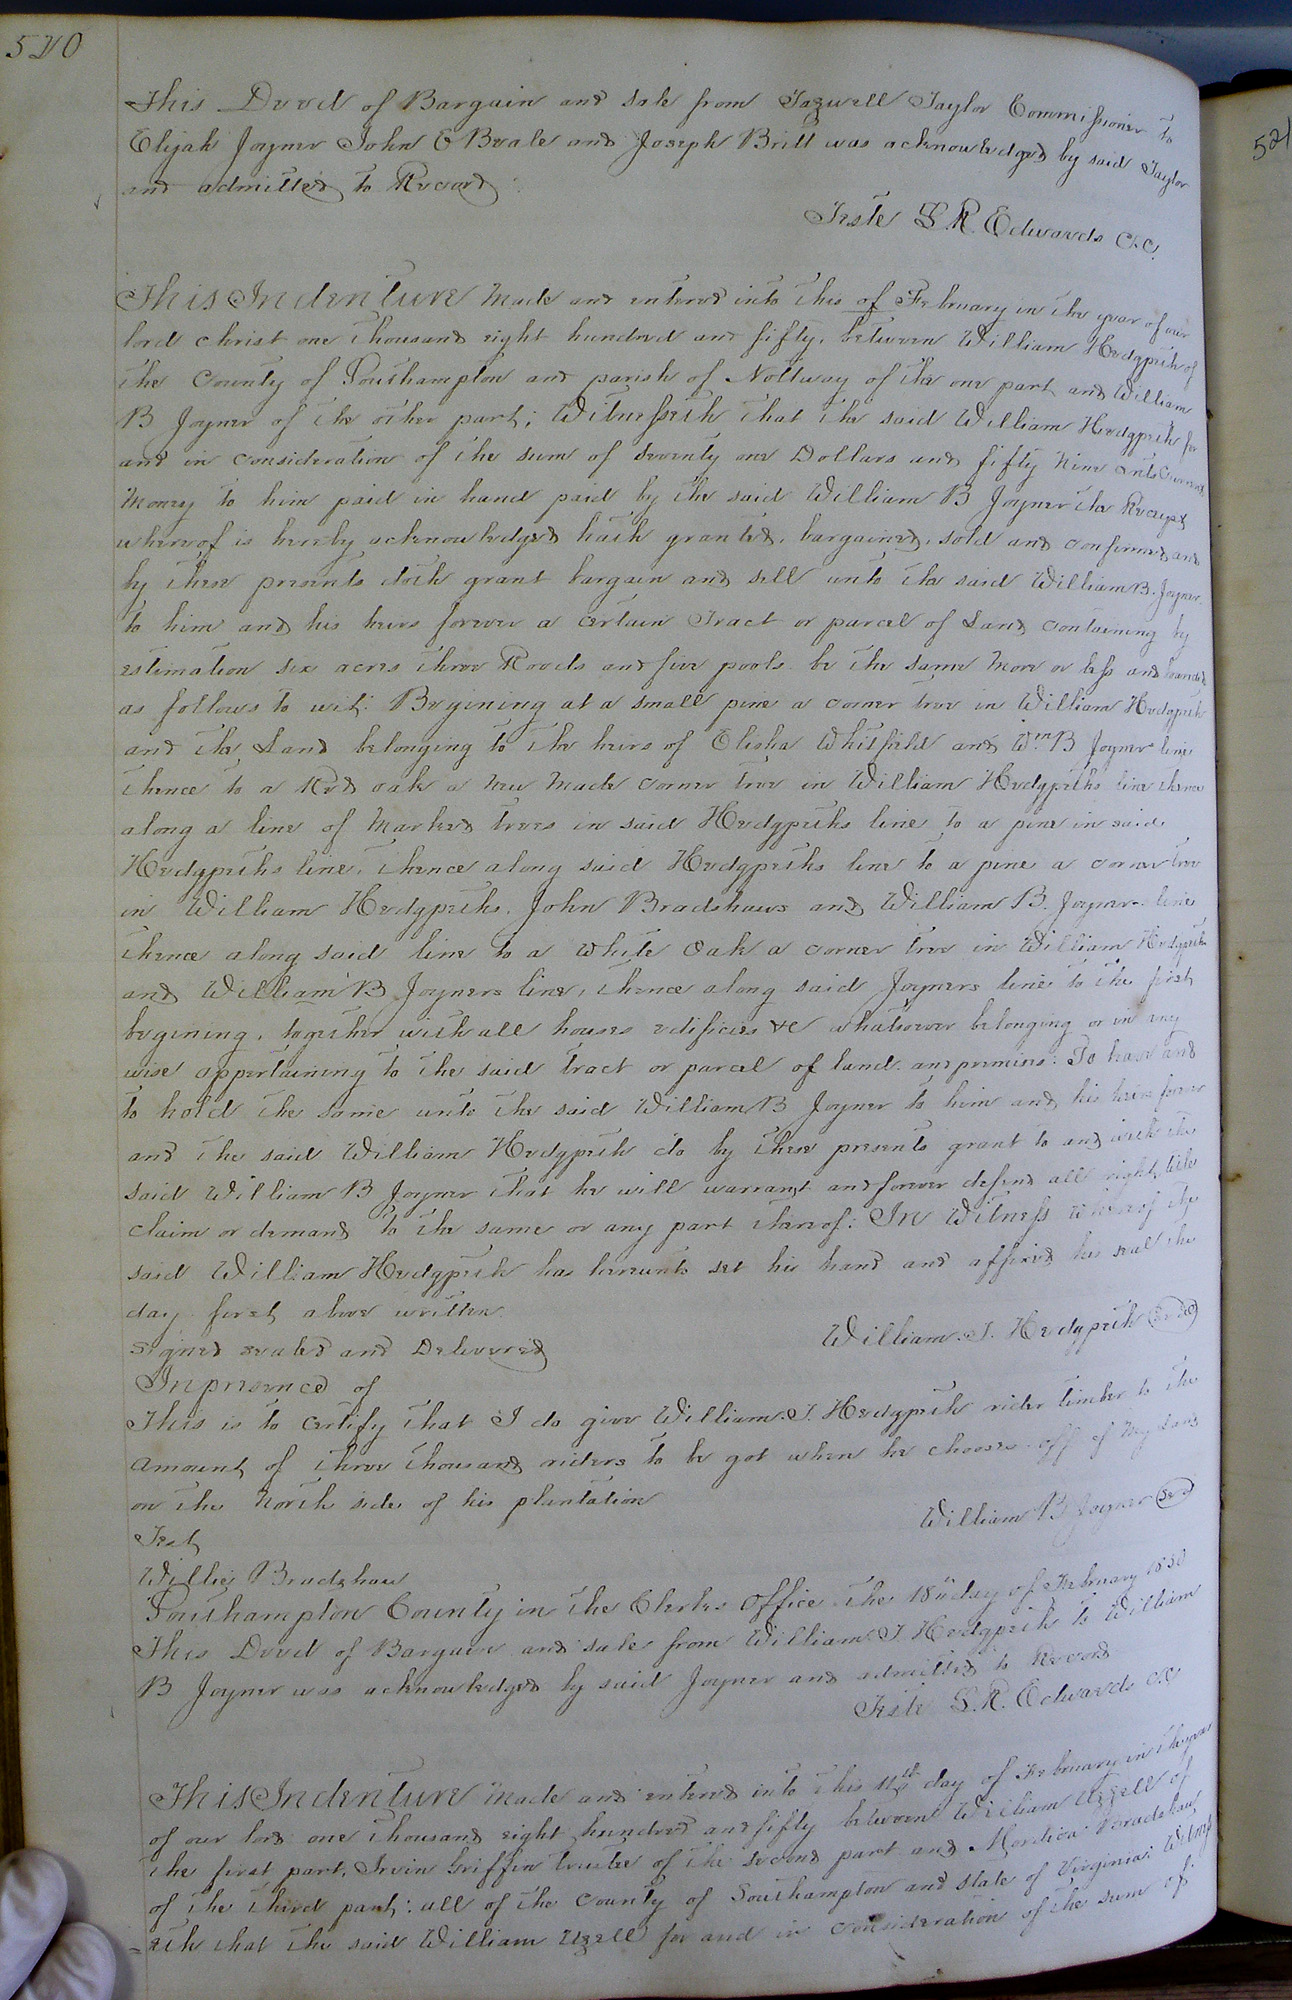 520
521
This Deed of Bargain and sale from Tazwell Taylor Commissioner to
Elijah Joyner John E Beale and Joseph Britt was acknowledged by said Taylor
and admitted to Record
Teste L. R. Edwards C.C.
This Indenture Made and entered into this of February in the year of our
lord christ one thousand eight hundred and fifty. between William Hedgpeth of
the County of Southampton and parish of Nottway of the one part and William
B Joyner of the other part; Witnesseth that the said William Hedgpeth for
and in consideration of the sum of Seventy one Dollars and fifty Nine cents Current
Money to him paid in hand paid by the said William B Joyner the Receipt
whereof is hereby acknowledged hath granted, bargained, sold and confirmed and
by these presents doth grant bargain and sell unto the said William B. Joyner.
to him and his heirs forever a certain Tract or parcel of Land containing by
estimation six acres three Roods and five pools be the same More or less and bounded
as follows to wit: Begining at a small pine a corner tree in William Hedgpeth
and the Land belonging to the heirs of Elisha Whitfield and Wm B Joyners line
thence to a Red oak a new made corner tree in William Hedgpeths line thence
along a line of Marked trees in said Hedgpeths line to a pine in said
Hedgpeths line, thence along said Hedgpeths line to a pine a corner tree
in William Hedgpeths, John Bradshaws and William B. Joyners line
thence along said line to a white Oak a corner tree in William Hedgpeth
and William B Joyners line, thence along said Joyners line to the first
begining, together with all houses edificies &c whatsoever belonging or in any
wise appertaining to the said tract or parcel of land and premins: To have and
to hold the same unto the said William B Joyner to him and his heirs forever
and the said William Hedgpeth do by these presents grant to and with the
said William B Joyner that he will warrant and forever defend all right, title
claim or demand to the same or any part thereof: In Witness Whereof the
said William Hedgpeth has hereunto set his hand and affixed his seal the
day first above written
William. J. Hedgpeth Seal
Signed sealed and Delivered
In presence of
This is to certify that I do give William. J. Hedgpeth rider timber to the
amount of three thousand riders to be got when he chooses off of My Land
on the North side of his plantation
William B Joyner Seal
Test
Willie Bradshaw
Southampton County in the Clerks Office the 18th day of February 1850
This Deed of Bargain and sale from William J. Hedgpeth to William
B Joyner was acknowledged by said Joyner and admitted to Record
Teste L. R. Edwards C.C
This Indenture Made and entered into this 11th day of February in the year
of our lord one thousand eight hundred and fifty between William Uzzell of
the first part, Irvin Griffin trustee of the second part and Mordica Bradshaw
of the third part: all of the County of Southampton and state of Virginia: Witness
=eth that the said William Uzell for and in consideration of the sum of